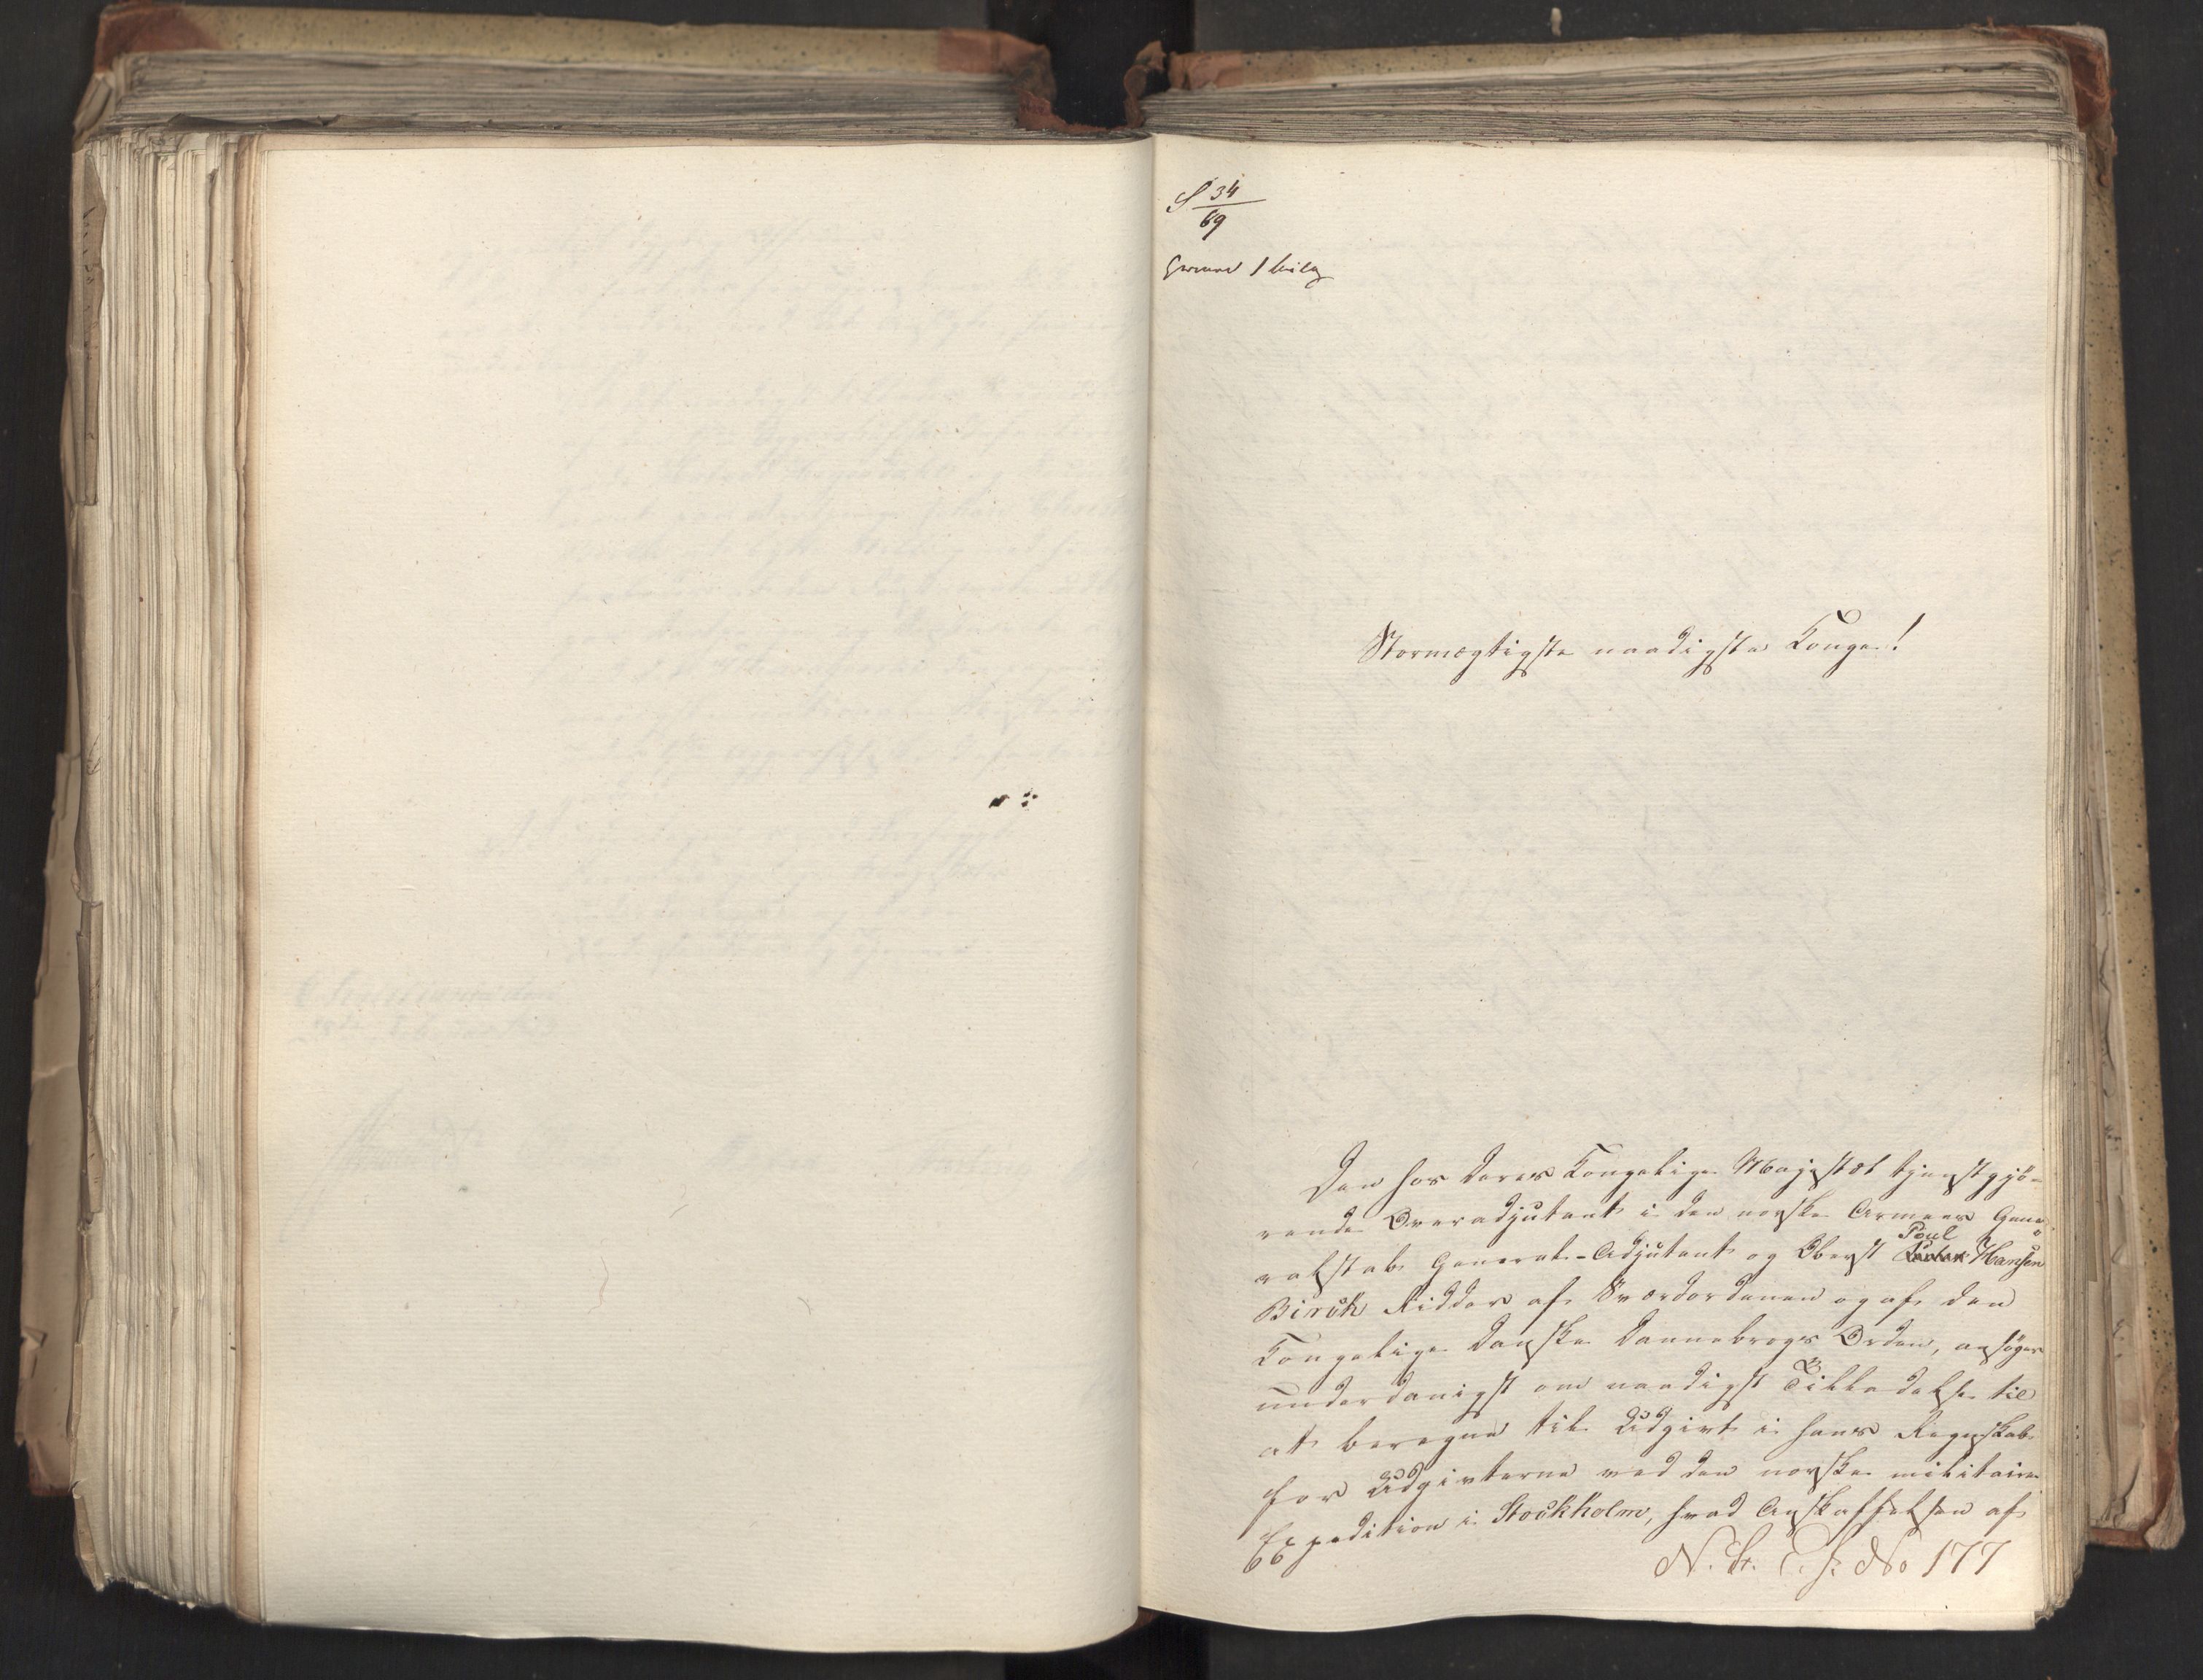 S 34/69
1 bilag
Stormægtigste naadigste Konge!
Den hos Deres Kongelige Majestæt tjenestgjö-
rende Overadjutant i den norske Armees Gene-
ralstab General-Adjutant og Oberst Poul Hansen
Birch Ridder af Sværdordenen og af den
Kongelige Danske Dannebrogs Orden, ansöger
underdanigst om naadigst Tilladelse til
at beregne til Udgivt i hans Regnskab
for Udgivterne ved den norske militaire
Expedition i Stockholm, hvad Anskaffelsen af
N. St. E. J. No 177